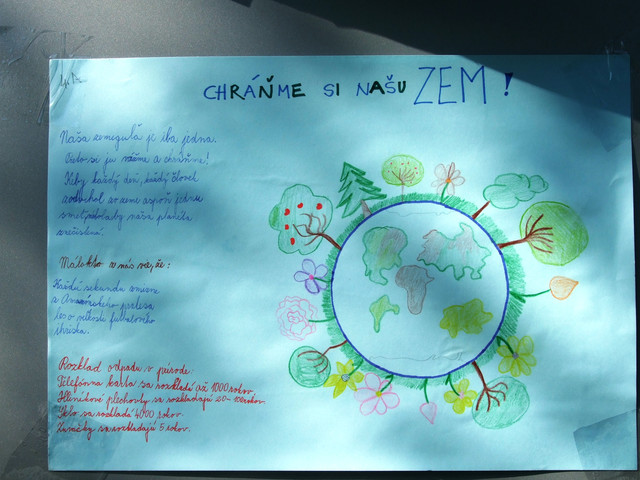 CHRÁŇME SI NAŠU ZEM!
Naša zemeguľa je iba jedna.
ju važme a chráňme!
Keby každý deň, každý človek
zo zeme aspoň jednu
naša planéta
Málokto z nás vie, že:
Každú sekundu zmizne
z Amazonského pralesa
les o veľkosti futbalového
ihriska.
Rozklad odpadu v prírode:
Telefónna karta sa rozkladá až 1000 rokov.
Hliníkové plechovky sa rozkladajú
Sklo sa rozkladá 4000 rokov.
Žuvačky sa rozkladajú 5 rokov.